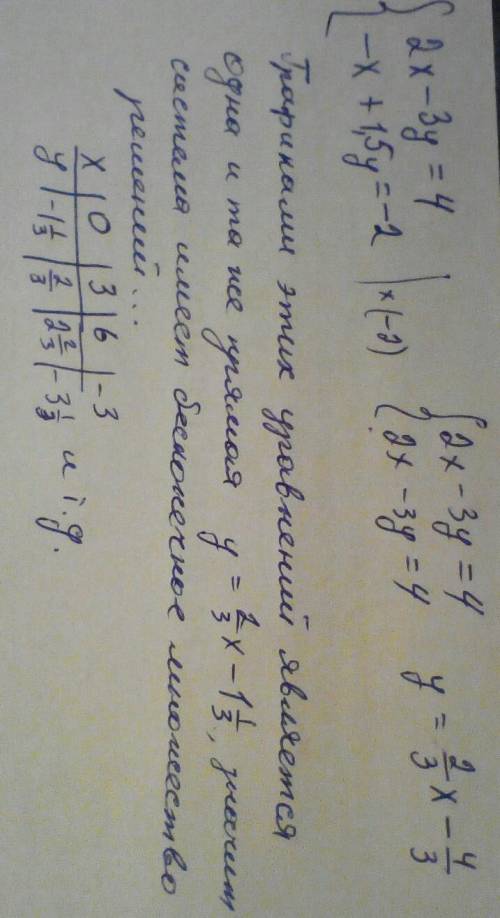 { 2x - 3y = 4
{ -x + 1,5y = -2 | × (-2) { 2x - 3y = 4
{ 2x - 3y = 4 y = 2/3 x - 4/3
Графиками этих уравнений является
одна и та же прямая y = 2/3 x - 1 1/3, значит
система имеет бесконечное множество
решений...
x | 0 | 3 | 6 | -3
y | -1 1/3 | 2/3 | 2 2/3 | -3 1/3 и т.д.